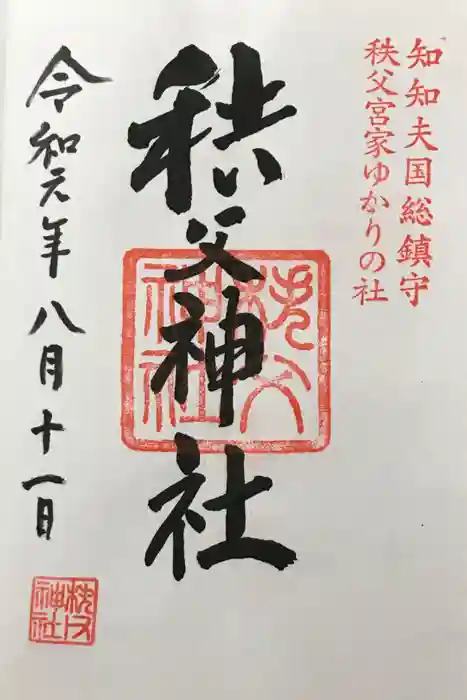 知知夫国総鎮守
秩父宮家ゆかりの社
秩父神社
秩父神社
令和元年八月十一日
秩父神社